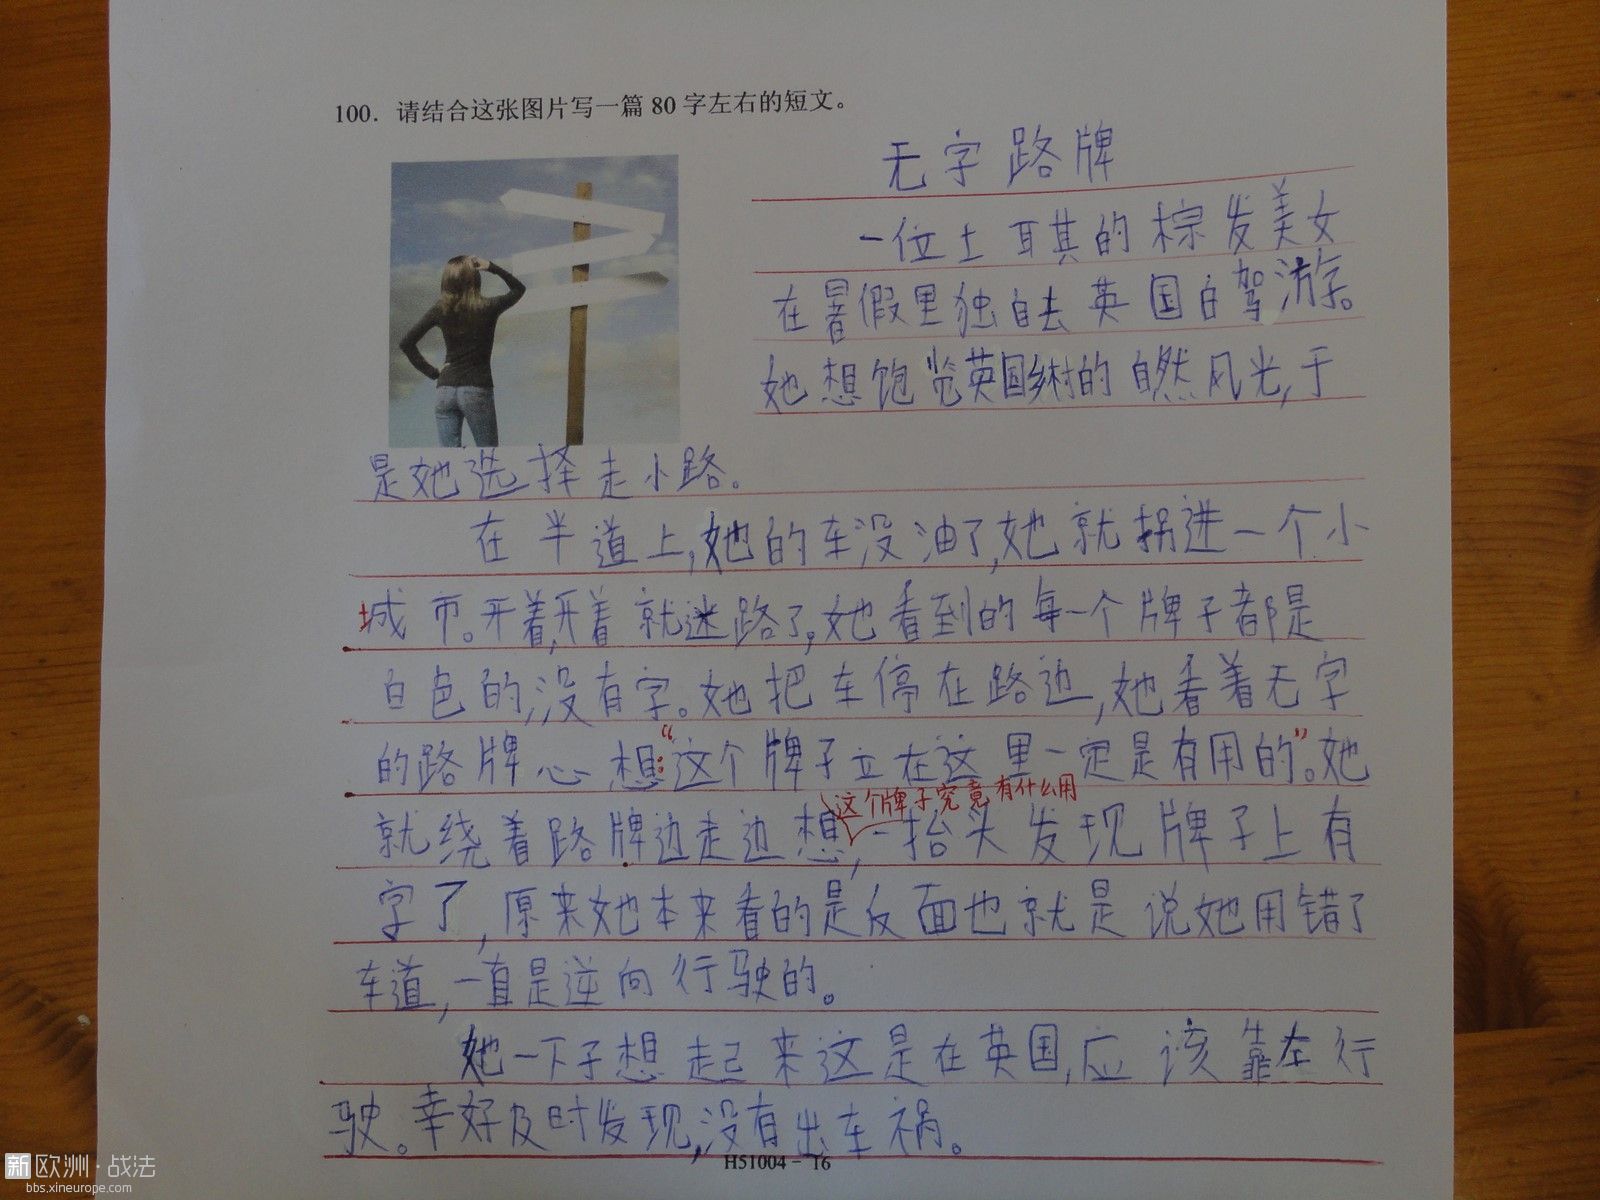 100. 请结合这张图片写一篇 80 字左右的短文。
无字路牌
一位土耳其的棕发美女
在暑假里独自去英国自驾游。
她想饱览英国乡村的自然风光,于
是她选择走小路。
在半道上,她的车没油了,她就拐进一个小
城市。开着,开着就迷路了,她看到的每一个牌子都是
白色的,没有字。她把车停在路边,她看着无字
的路牌心想:“这个牌子立在这里一定是有用的”。她
这个牌子究竟有什么用
就绕着路牌边走边想,一抬头发现牌子上有
字了,原来她本来看的是反面也就是说她用错了
车道,一直是逆向行驶的。
她一下子想起来这是在英国,应该靠左行
驶。幸好及时发现,没有出车祸。
H51004 - 16
新欧洲·战法
bbs.xineurope.com